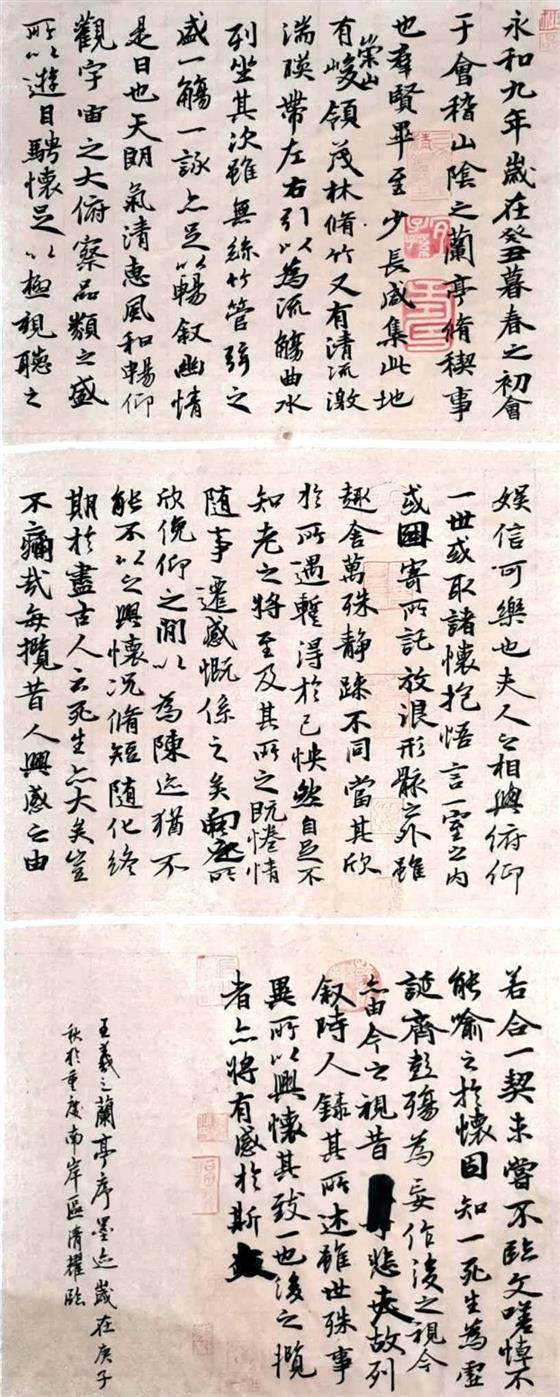 永和九年歲在癸丑暮春之初會
于會稽山陰之蘭亭脩稧事
也羣賢畢至少長咸集此地
有崇山峻領茂林脩竹又有清流激
湍暎帶左右引以為流觴曲水
列坐其次雖無絲竹管弦之
盛一觴一詠亦足以暢叙幽情
是日也天朗氣清惠風和暢仰
觀宇宙之大俯察品類之盛
所以遊目騁懷足以極視聽之
娛信可樂也夫人之相與俯仰
一世或取諸懷抱悟言一室之內
或因寄所託放浪形骸之外雖
趣舍萬殊静躁不同當其欣
於所遇蹔得於己怏然自足不
知老之將至及其所之既惓情
隨事遷感慨係之矣向之所
欣俛仰之閒以為陳迹猶不
能不以之興懷況脩短隨化終
期於盡古人云死生亦大矣豈
不痛哉每攬昔人興感之由
若合一契未嘗不臨文嗟悼不
能喻之於懷固知一死生為虛
誕齊彭殤為妄作後之視今
亦由今之視昔悲夫故列
叙時人錄其所述雖世殊事
異所以興懷其致一也後之攬
者亦將有感於斯文
王羲之蘭亭序墨迹歲在庚子
秋於重慶南岸區清耀臨